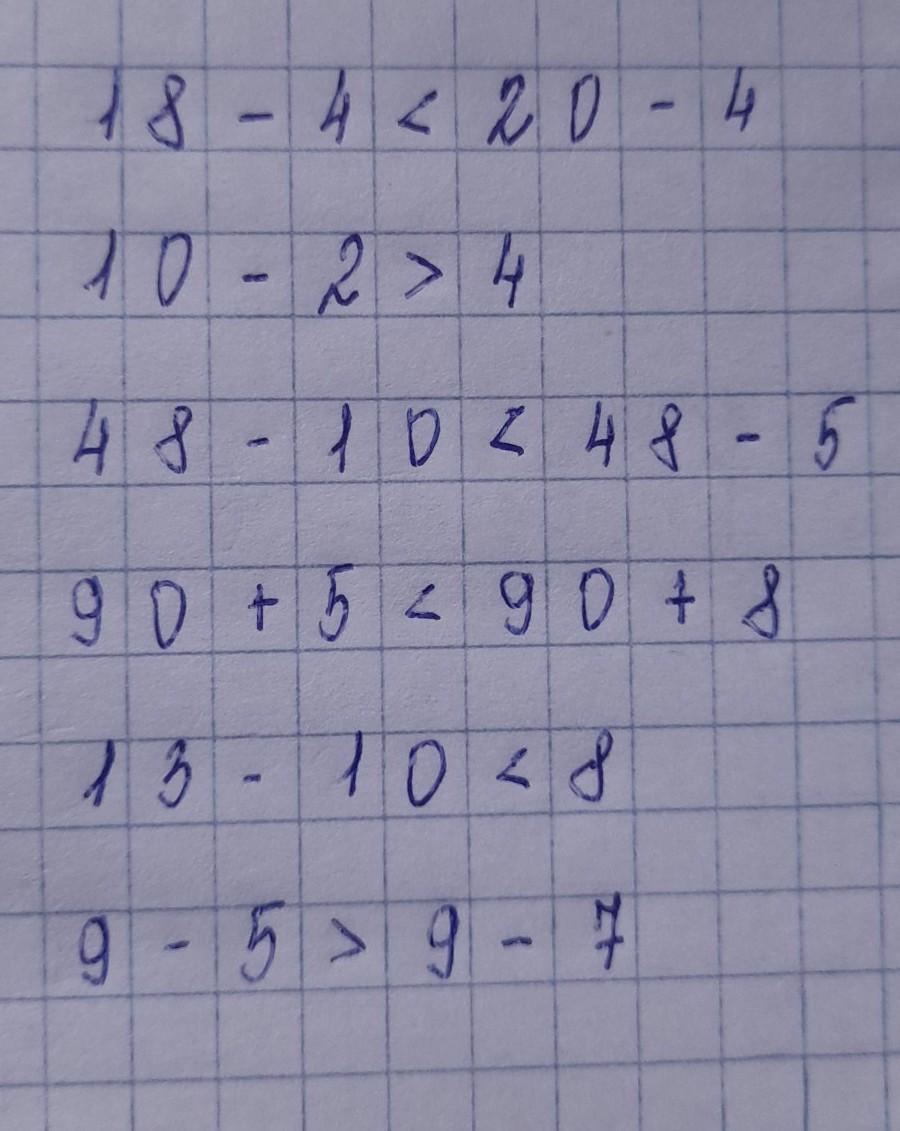 18 - 4 < 20 - 4
10 - 2 > 4
48 - 10 < 48 - 5
90 + 5 < 90 + 8
13 - 10 < 8
9 - 5 > 9 - 7